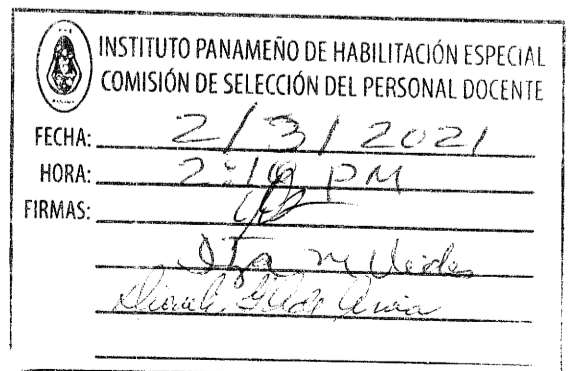 INSTITUTO PANAMEÑO DE HABILITACIÓN ESPECIAL
COMISIÓN DE SELECCIÓN DEL PERSONAL DOCENTE
FECHA: 2/3/2021
HORA: 2:19 PM
FIRMAS: